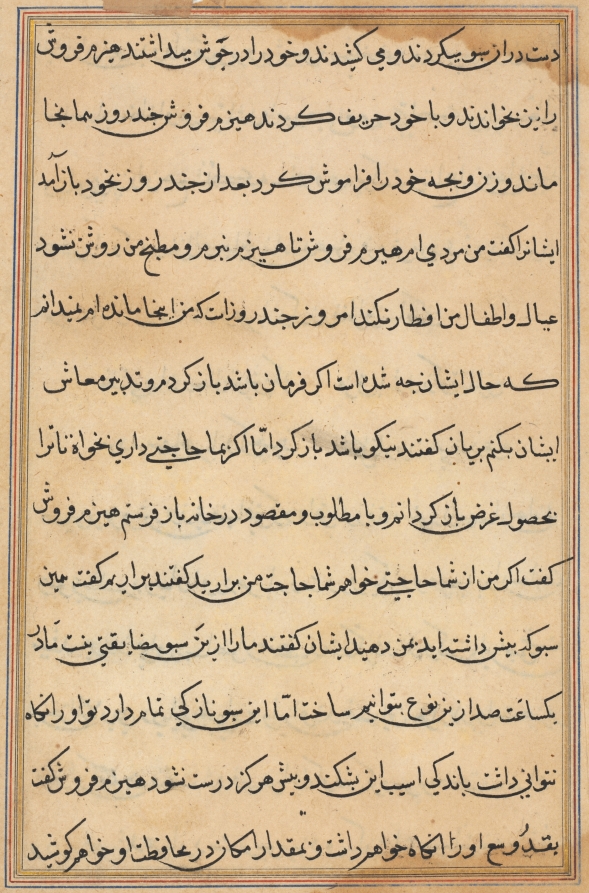 دست در از سبو میکردند و می کشیدند و خود را در جوش میداشتند هیزم فروش
را نیز بخواندند و با خود حریف کردند هیزم فروش جند روز همانجا
ماند و زن و بجه خود را فراموش کرد بعد از جند روز بخود باز آمد
ایشانرا کفت من مردی ام هیزم فروش تا هیزم نبرم و مطبخ من روشن نشود
عیال و اطفال من افطار نکنند امروز جند روز است که من اینجا مانده ام نمیدانم
که حال ایشان جه شده است اکر فرمان باشد باز کردم و تدبیر معاش
ایشان بکنم پریان کفتند نیکو باشد باز کرد امّا اکر بما حاجتی داری بخواه تا ترا
بحصول غرض باز کردانم و با مطلوب و مقصود در خانه باز فرستم هیزم فروش
کفت اکر من از شما حاجتی خواهم شما حاجت من برارید کفتند براریم کفت همین
سبو که بیش داشته اید بمن دهید ایشان کفتند ما را ازین سبو مضایقتی نیست ما در
یکساعت صد ازین نوع بتوانیم ساخت امّا این سبو نازکی تمام دارد تو او را نکاه
نتوانی داشت باندکی اسیب این بشکند و بیش هرکز درست نشود هیزم فروش کفت
بقدر وسع او را نکاه خواهم داشت و بمقدار امکان در محافظت او خواهم کوشید